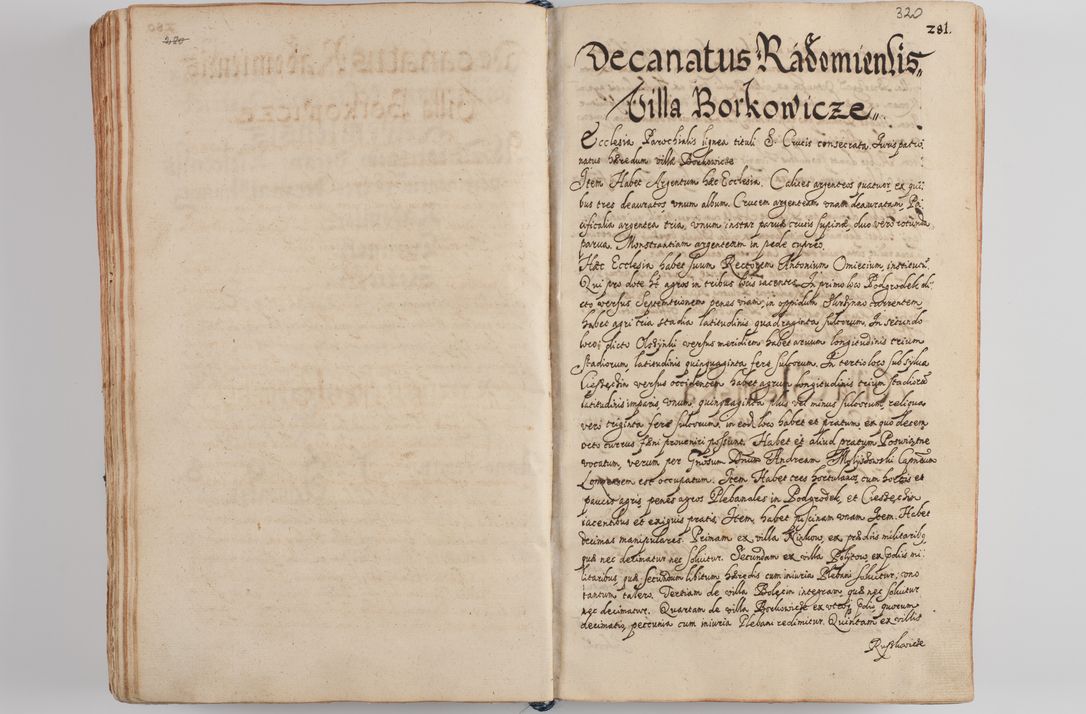 280
320
281.
Decanatus Radomiensis„
Villa Borkowicze„
Ecclesia Parochialis lignea tituli S. Crucis consecrata, Iuris patro
natus hæredum villæ Borkowicze
Item Habet Argentum hæc Ecclesia. Calices argenteos quatuor ex qui
bus tres deauratos vnum album. Crucem argenteam vnam deauratam, Pa
cificalia argentea tria, vnum instar paruæ crucis supinæ, duo vero rotunda
parua. Monstrantiam argenteam in pede cupreo.
Hæc Ecclesia habet suum Rectorem Antonium Omiecium, institutū.
Qui pro dote hēt agros in tribus locis iacentes. In primo loco Podgrodek di
cto versus Septentrionem penes viam, in oppidum currentem
habet agri tria stadia latitudinis quadraginta sulcorum. In secundo
loco, dicto versus meridiem habet aruum longitudinis trium
stadiorum latitudinis quinquaginta fere sulcorum. In tertio loco sub sylua
versus occidentem habet agrum longitudinis trium stadiorū
latitudinis imparis, vnum quinquaginta plus vel minus sulcorum, reliqua
vero triginta fere sulcorum, in eod. loco habet et pratum ex quo decem
octo currus fæni prouenire possunt. Habet et aliud pratum
vocatum, verum per Gnosum Dnum Andream
est occupatum. Item Habet tres hortulanos, cum hortis et
paucis agris, penes agros Plebanales in Podgrodek, et
iacentibus et exiguis pratis. Item, habet piscinam vnam. Item. Habet
decimas manipulares. Primam ex villa ex prædiis militaribq
quæ nec decimatur nec soluitur. Secundam ex villa ex pdiis mi
litaribus, quæ secundum libitum hæredis cum iniuria Plebani soluitur, vno
tantum talero. Tertiam de villa Bolęcin integram, quæ nec soluitur
nec decimatur. Quartam de villa Borkowicze ex vtrobq pdiis, quorum
decimatio, peccunia cum iniuria Plebani redimitur. Quintam ex villis